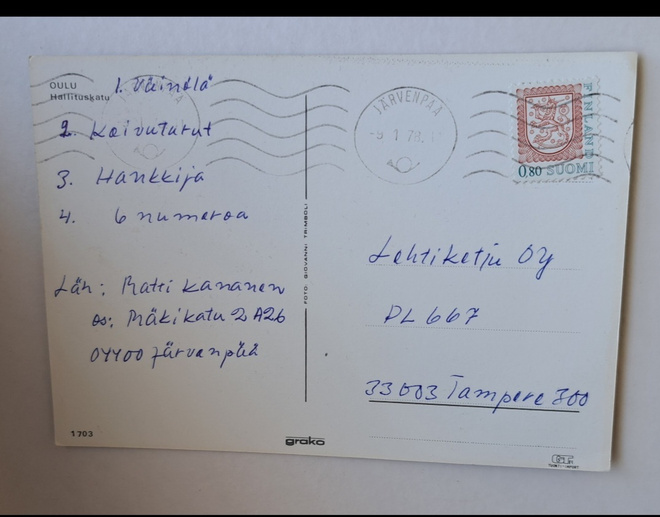 OULU
Hallituskatu
1. Väinölä
2. Koivutarut
3. Hankkija
4. 6 numeroa
Läh: Matti Kananen
os: Mäkikatu 2 A26
04400 Järvenpää
1703
FOTO: GIOVANNI TRIMBOLI
grako
JÄRVENPÄÄ
-8.1.78.
FINLAND
0,80 SUOMI
Lehtiketju OY
PL 667
33003 Tampere 300